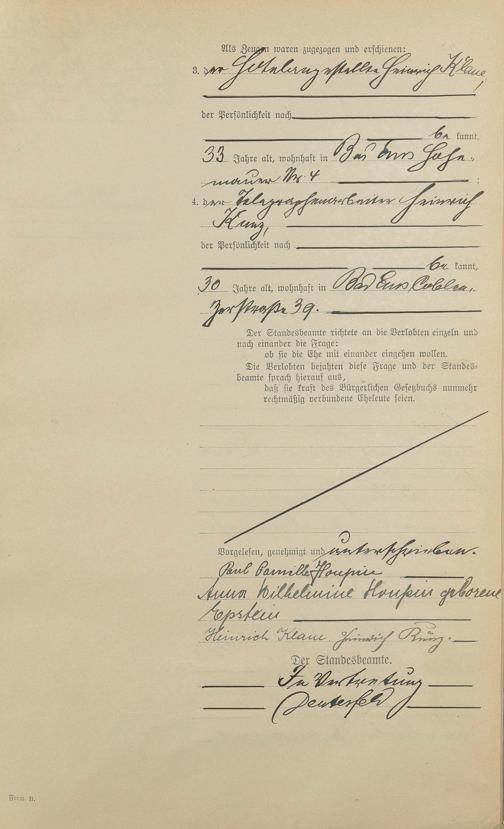 Als Zeugen waren zugezogen und erschienen:
3. der Hotelangestellte Heinrich Klane,
der Persönlichkeit nach
be kannt,
33 Jahre alt, wohnhaft in Bad Ems Hohe-
mauer Nr. 4 ;
4. der Telegraphenarbeiter Heinrich
Kunz,
der Persönlichkeit nach
be kannt,
30 Jahre alt, wohnhaft in Bad Ems, Coblen-
zerstraße 39.
Der Standesbeamte richtete an die Verlobten einzeln und
nach einander die Frage:
ob sie die Ehe mit einander eingehen wollen.
Die Verlobten bejahten diese Frage und der Standes-
beamte sprach hierauf aus,
daß sie kraft des Bürgerlichen Gesetzbuchs nunmehr
rechtmäßig verbundene Eheleute seien.
Vorgelesen, genehmigt und unterschrieben.
Paul Camille Houpin
Anna Wilhelmine Houpin geborene
Epstein
Heinrich Klane. Heinrich Kunz.
Der Standesbeamte.
In Vertretung
Form. B.